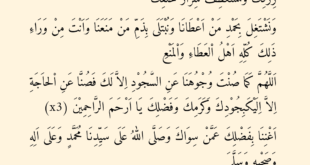 وَنَشْتَغِلَ بِحَمْدِ مَنْ اَعْطَانَا وَنُبْتَلَى بِذَمِّ مَنْ مَنَعَنَا وَاَنْتَ مِنْ وَرَاءِ
ذٰلِكَ كُلِّهِ اَهْلُ الْعَطَاءِ وَالْمَنْعِ
اَللّٰهُمَّ كَمَا صُنْتَ وُجُوْهَنَا عَنِ السُّجُوْدِ اِلاَّ لَكَ فَصُنَّا عَنِ الْحَاجَةِ
اِلاَّ اِلَيْكَ بِجُوْدِكَ وَكَرَمِكَ وَفَضْلِكَ يَا اَرْحَمَ الرَّاحِمِيْنَ (x3)
اَغْنِنَا بِفَضْلِكَ عَمَّنْ سِوَاكَ وَصَلَّى اللهُ عَلَى سَيِّدِنَا مُحَمَّدٍ وَعَلَى اٰلِهِ
وَصَحْبِهِ وَسَلَّمَ